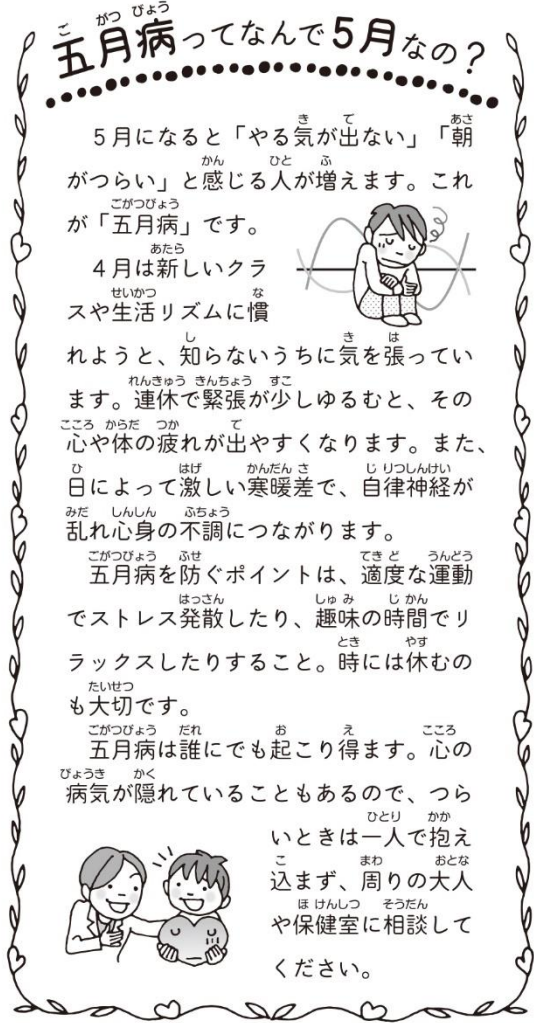 五月病ってなんで5月なの？
5月になると「やる気が出ない」「朝
がつらい」と感じる人が増えます。これ
が「五月病」です。
4月は新しいクラ
スや生活リズムに慣
れようと、知らないうちに気を張ってい
ます。連休で緊張が少しゆるむと、その
心や体の疲れが出やすくなります。また、
日によって激しい寒暖差で、自律神経が
乱れ心身の不調につながります。
五月病を防ぐポイントは、適度な運動
でストレス発散したり、趣味の時間でリ
ラックスしたりすること。時には休むの
も大切です。
五月病は誰にでも起こり得ます。心の
病気が隠れていることもあるので、つら
いときは一人で抱え
込まず、周りの大人
や保健室に相談して
ください。